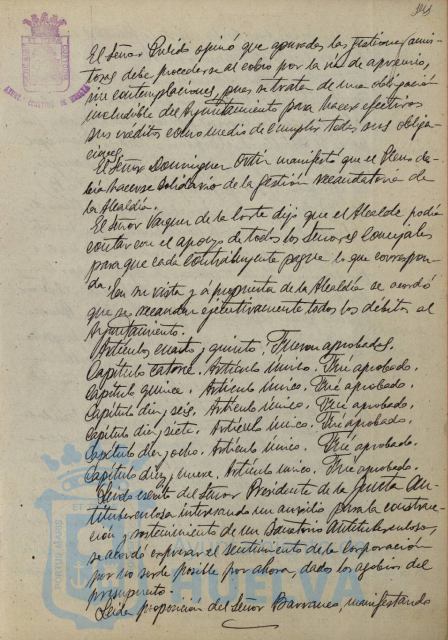 El Señor Pulido opinó que apuradas las gestiones amis-
tosas debe procederse al cobro por la vía de apremio,
sin contemplaciones, pues se trata de una obligación
ineludible del Ayuntamiento para hacer efectivos
sus créditos como medio de cumplir todas sus obliga-
ciones.
El Señor Dominguez Ortiz manifestó que el Pleno de-
bia hacerse solidario de la gestión recaudatoria de
la Alcaldía.
El Señor Vazquez de la Corte dijo que el Alcalde podía
contar con el apoyo de todos los Señores Concejales
para que cada contribuyente pague lo que correspon-
da.
En su vista y a propuesta de la Alcaldía se acordó
que se recauden ejecutivamente todos los débitos al
Ayuntamiento.
Artículos cuarto y quinto. Fueron aprobados.
Capítulo catorce. Artículo único. Fué aprobado.
Capítulo quince. Artículo único. Fué aprobado.
Capítulo diez y seis. Artículo único. Fué aprobado.
Capítulo diez y siete. Artículo único. Fué aprobado.
Capítulo diez y ocho. Artículo único. Fué aprobado.
Capítulo diez y nueve. Artículo único. Fué aprobado.
Leido escrito del Señor Presidente de la Junta An-
tituberculosa interesando un auxilio para la construc-
ción y sostenimiento de un Sanatorio Antituberculoso,
se acordó expresar el sentimiento de la Corporación
por no serle posible por ahora, dado los agobios del
presupuesto.
Leida proposición del Señor Barranco, manifestando
PORTUS MARIS
HUELVA